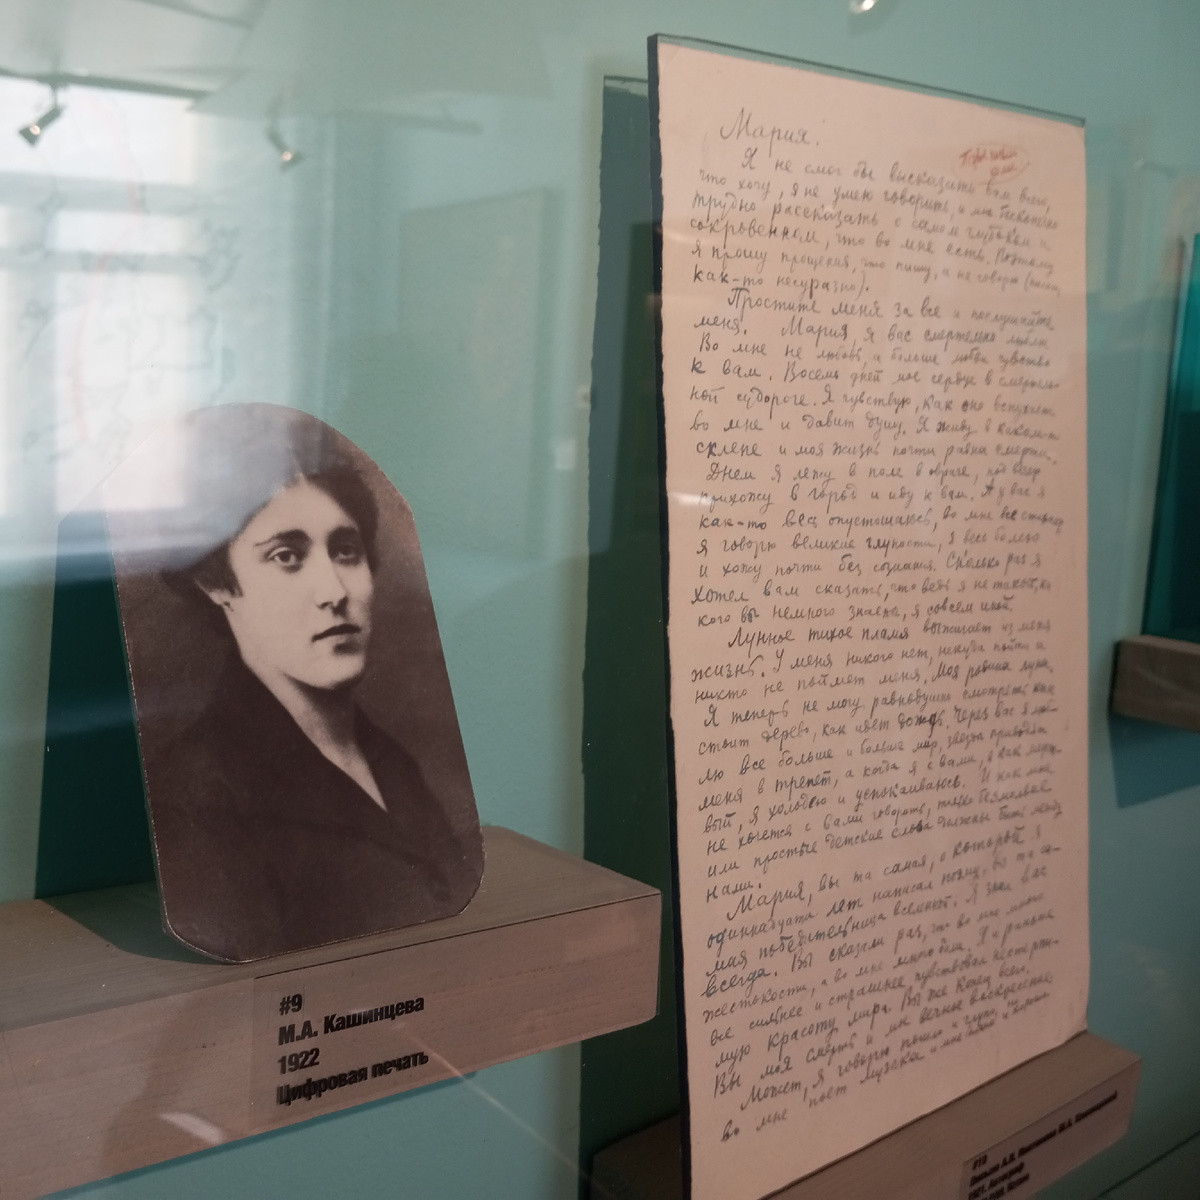 #9
М.А. Кашинцева
1922
Цифровая печать
Мария!
Я не смог бы высказать вам всего,
что хочу, я не умею говорить, и мне
трудно рассказать о самом глубоком и
сокровенном, что во мне есть. Поэтому
я прошу прощения, что пишу, а не говорю
как-то несуразно).
Простите меня за все и послушайте
меня. Мария, я вас смертельно люблю
Во мне не любовь, а больше любви чувство
к вам. Восемь дней мое сердце в смертель-
ной судороге. Я чувствую, как оно вспухает
во мне и давит душу. Я живу в каком-то
склепе и моя жизнь почти равна смерти.
Днем я лежу в поле в овраге, под вечер
прихожу в город и иду к вам. А у вас я
как-то весь опустошаюсь, во мне все стихает
я говорю великие глупости, я весь болею
и хожу почти без сознания. Сколько раз я
хотел вам сказать, что ведь я не такой, ка
кого вы немного знаете, я совсем иной.
Лунное тихое пламя выжигает из меня
жизнь. У меня никого нет, некуда пойти и
никто не поймет меня. Моя родина луна.
Я теперь не могу равнодушно смотреть как
стоит дерево, как идет дождь. Через вас я люб-
лю все больше и больше мир, звезды приводят
меня в трепет, а когда я с вами, я как мерт-
вый, я холодею и успокаиваюсь. И как мне
не хочется с вами говорить, только безмолвие
или простые детские слова должны быть между
нами.
Мария, вы та самая, о которой я
одиннадцати лет написал поэму, вы та са-
мая победительница вселенной. Я знал вас
всегда. Вы сказали раз, что во мне много
жестокости, а во мне много боли. Я раньше
все сильнее и страшнее чувствовал нестерпи-
мую красоту мира. Вы же конец всего.
Вы моя смерть и мое вечное воскресение
Может, я говорю пошло и глупо, но
во мне поет музыка и мне
#10